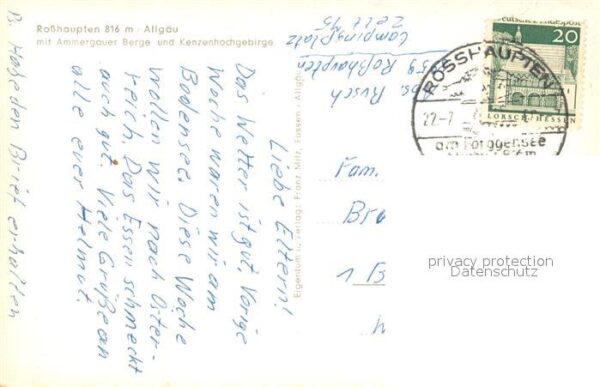 Roßhaupten 816 m · Allgäu
mit Ammergauer Berge und Kenzenhochgebirge
Liebe Eltern!
Das Wetter ist gut. Vorige
Woche waren wir am
Bodensee. Diese Woche
wollen wir nach Öster-
reich. Das Essen schmeckt
auch gut. Viele Grüße an
alle euer Helmut.
B. Habe den Brief erhalten
Eigentum u. Verlag: Franz Milz, Füssen · Allgäu
Abs. Busch
8959 Roßhaupten
Campingplatz
Zelt 45
Deutsche Bundespost
20
LORSCH/HESSEN
ROSSHAUPTEN
22.-7
am Forggensee
Fam.
Bro
1 B
privacy protection
Datenschutz